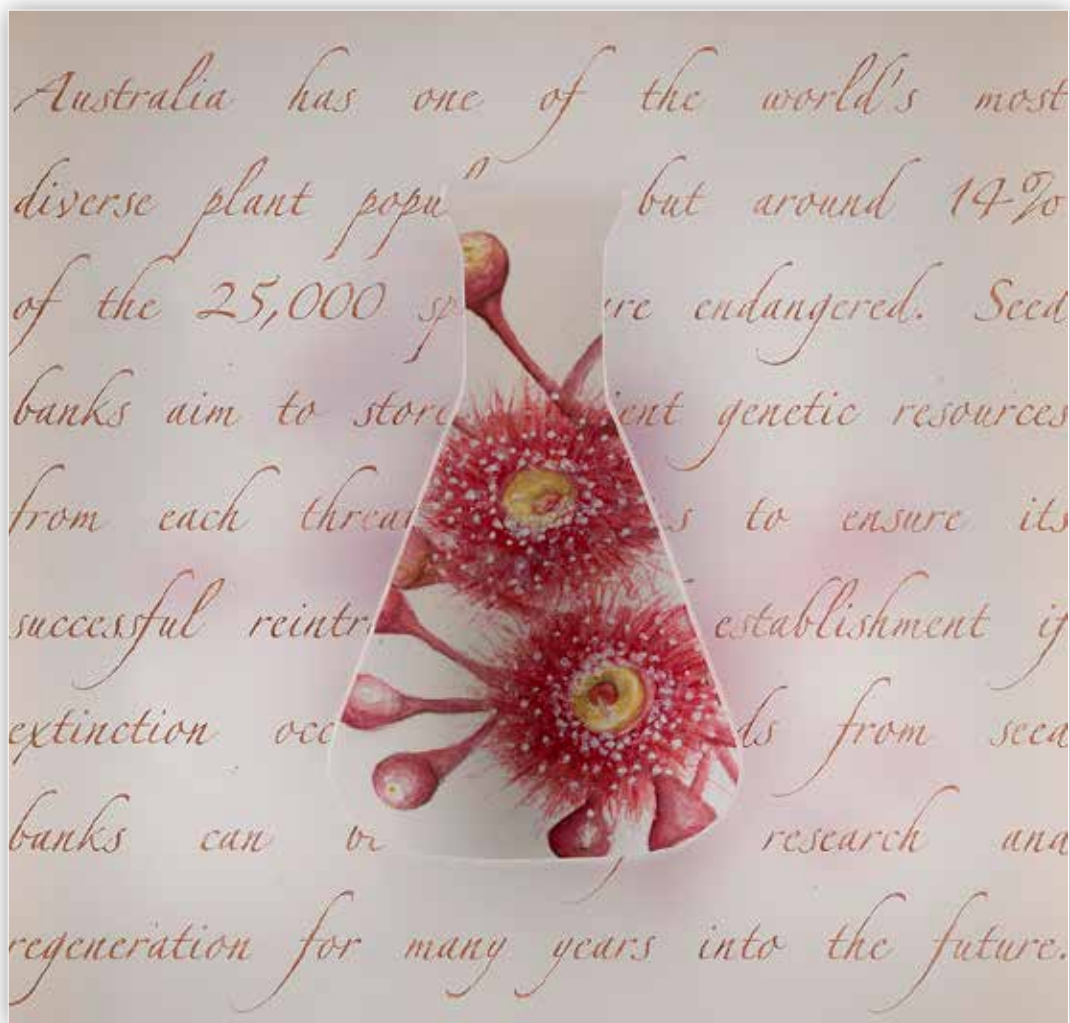 Australia has one of the world's most
diverse plant popu but around 14%
of the 25,000 sp re endangered. Seed
banks aim to store ient genetic resources
from each threa s to ensure its
successful reintr establishment if
extinction occ ds from seed
banks can research and
regeneration for many years into the future.